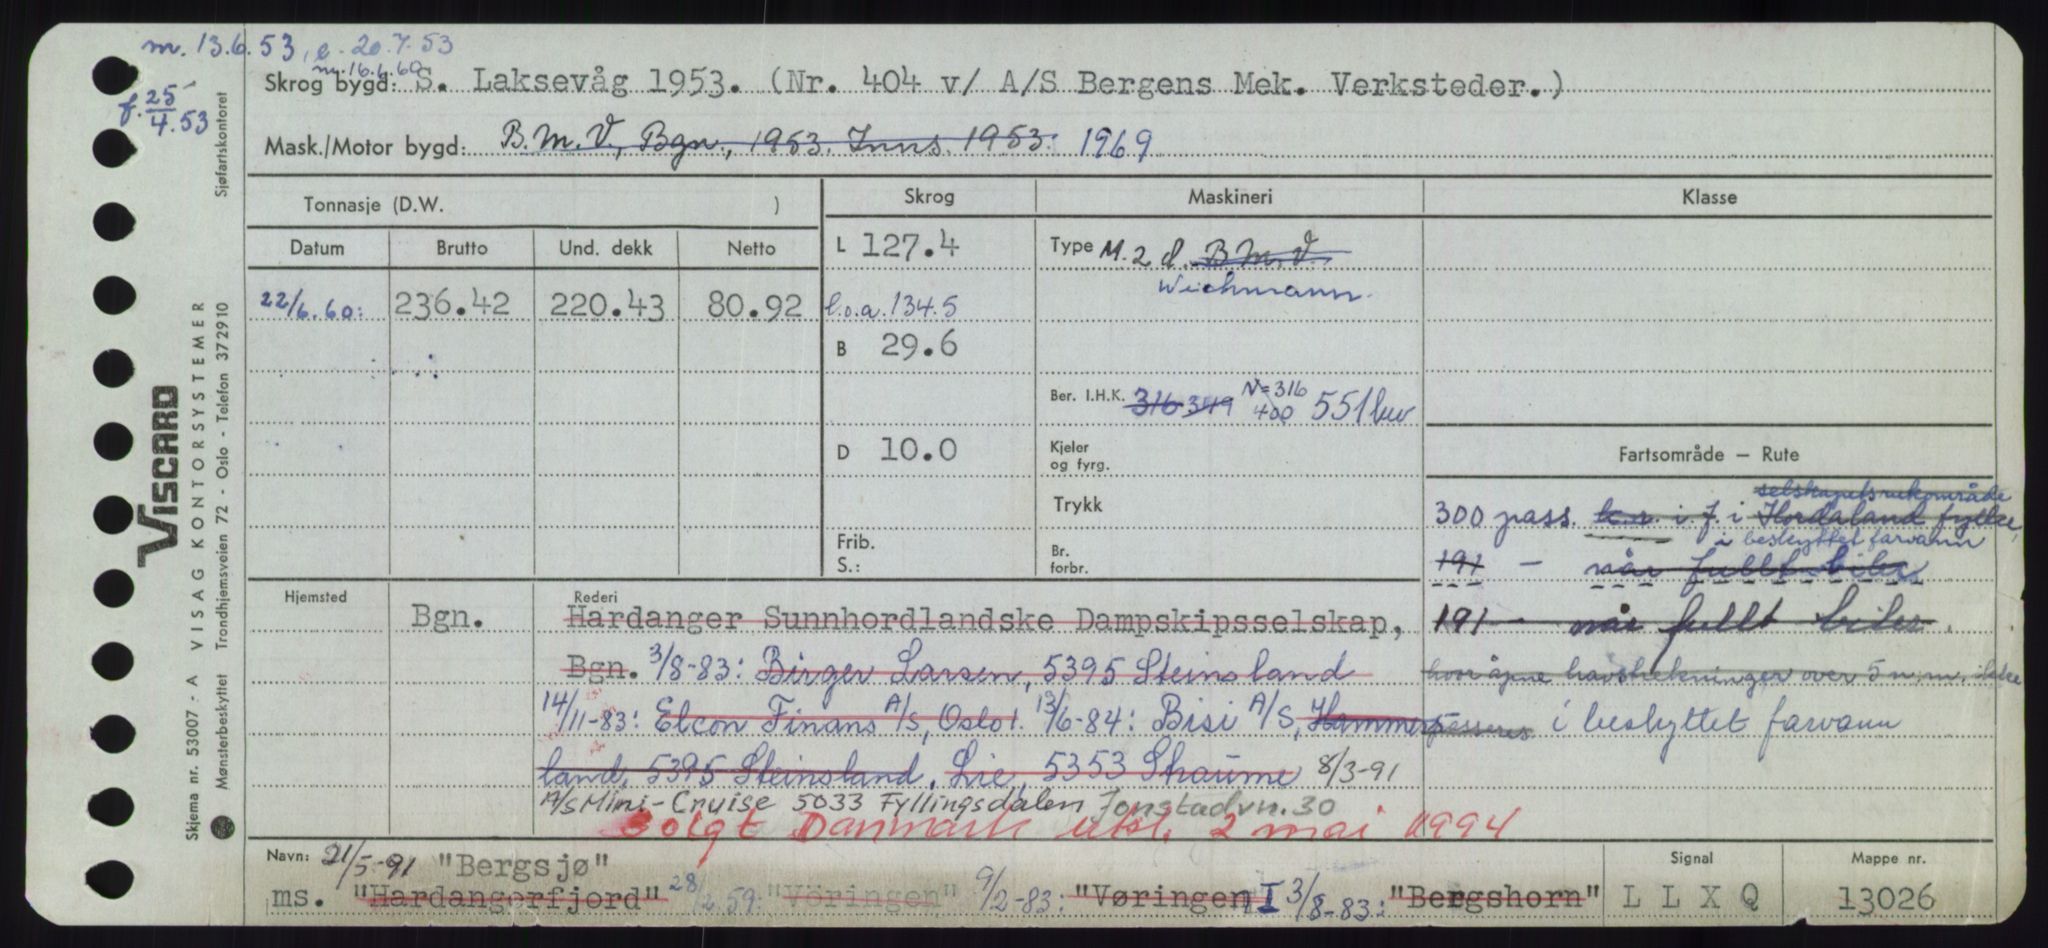 m. 13.6.53, e. 20.7.53
m. 16.6.60
f. 25/4.53
Skrog bygd: S. Laksevåg 1953. (Nr. 404 v/ A/S Bergens Mek. Verksteder.)
Mask./Motor bygd: B.M.V., Bgn., 1953. Inns. 1953. 1969
Tonnasje (D.W. )
Skrog
Maskineri
Klasse
Datum Brutto Und. dekk Netto
L 127.4
Type M. 2 d. B.M.V.
Wichmann.
22/6.60: 236.42 220.43 80.92
l.o.a. 134.5
B 29.6
Ber. I.H.K. 316 349 N=316 400 551 kw
D 10.0
Kjeler og fyrg.
Trykk
Frib.
S.:
Br. forbr.
Fartsområde — Rute
selskapets ruteområde
300 pass. k.r. i.f. i Hordaland fylke,
i beskyttet farvann
191 — når fullt biler
191 — når fullt biler.
hvor åpne havstrekninger over 5 n.m. ikke
passeres i beskyttet farvann
Hjemsted
Bgn.
Rederi
Hardanger Sunnhordlandske Dampskipsselskap,
Bgn. 3/8-83: Birger Larsen, 5395 Steinsland
14/11-83: Elcon Finans A/S, Oslo1. 13/6-84: Bisi A/S, Hammers-
land, 5395 Steinsland. Lie, 5353 Straume 8/3-91
A/S Mini-Cruise 5033 Fyllingsdalen Jonstadvn. 30
Solgt Danmark utkl. 2 mai 1994
Navn: 21/5-91 "Bergsjø"
ms. "Hardangerfjord" 28/2.59: "Vöringen" 9/2-83: "Vøringen I" 3/8-83: "Bergshorn"
Signal
L L X Q
Mappe nr.
13026
VISCARD
Skjema nr. 53007 - A VISAG KONTORSYSTEMER
Mønsterbeskyttet Trondhjemsveien 72 - Oslo - Telefon 372910
Sjøfartskontoret